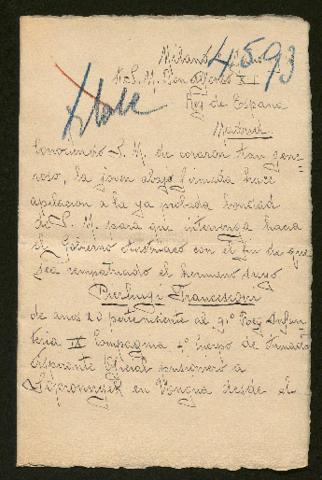 Milano
4593
A S. M. Don Alfonso XIII
Rey de España
Madrid
Conociendo S. M. de corazon tan gene-
roso, la joven abajo firmada hace
apelacion a la ya probada bondad
de S. M. para que intervenga hacia
el Gobierno Austriaco con el fin de que
sea rempatriado el hermano suyo
Pierluigi Francesconi
de anos 20 perteneciente al 91° Reg. Infan-
teria IX Compagnia 4° Cuerpo de Armata
aspirante Oficial prisionero a
Sopronnyek en Hongria desde el